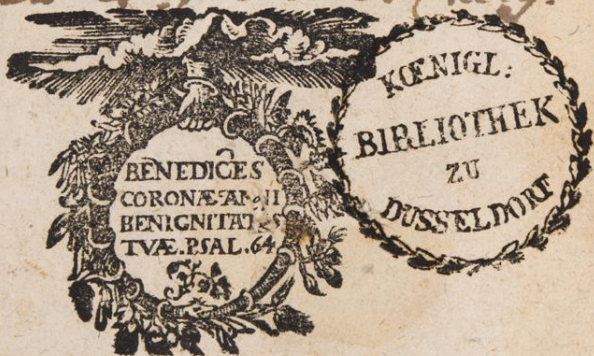 BENEDICES
CORONÆ AN NI
BENIGNITAT S
TVÆ. PSAL. 64
KŒNIGL:
BIBLIOTHEK
ZU
DUSSELDORF